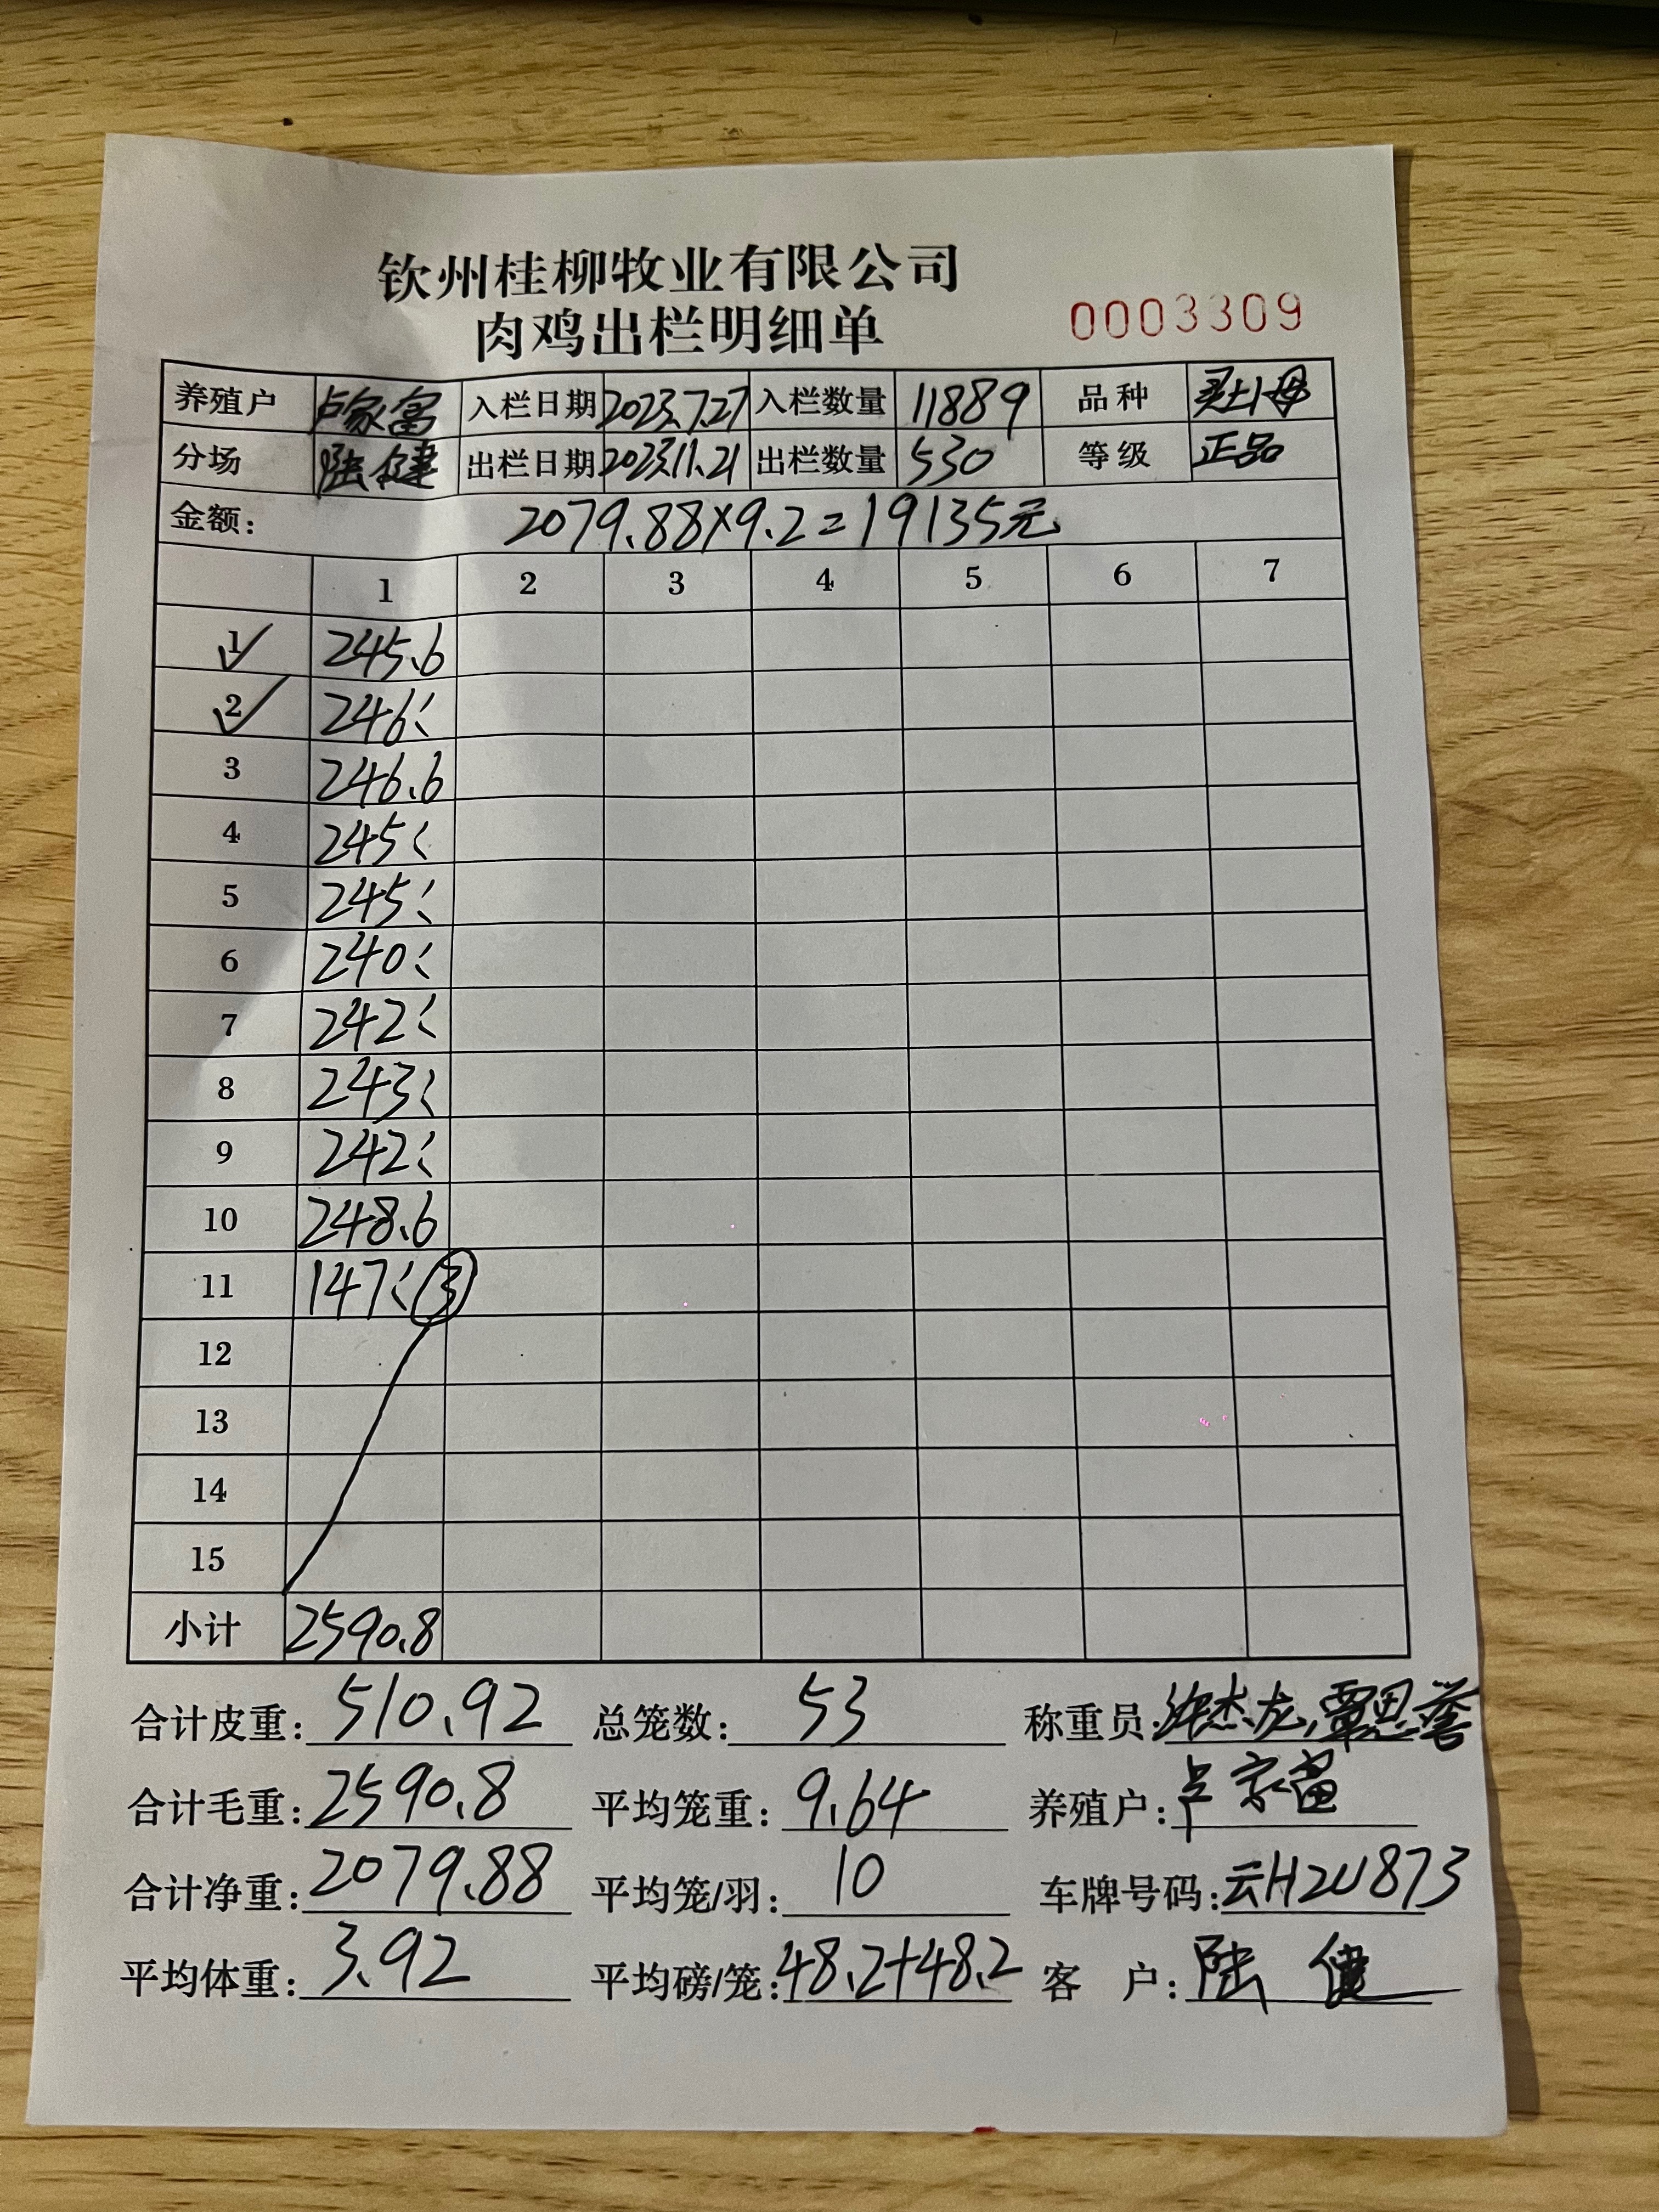 钦州桂柳牧业有限公司
肉鸡出栏明细单 0003309
养殖户 卢家富 入栏日期 2023.7.27 入栏数量 11889 品种
分场 陆健 出栏日期 2023.11.21 出栏数量 530 等级 正品
金额: 2079.88×9.2=19135元
1 2 3 4 5 6 7
1 245.6
2 246
3 246.6
4 245
5 245
6 240
7 242
8 243
9 242
10 248.6
11 147 ③
12
13
14
15
小计 2590.8
合计皮重: 510.92 总笼数: 53 称重员:
合计毛重: 2590.8 平均笼重: 9.64 养殖户: 卢家富
合计净重: 2079.88 平均笼/羽: 10 车牌号码: 云H2U873
平均体重: 3.92 平均磅/笼: 48.2+48.2 客 户: 陆健